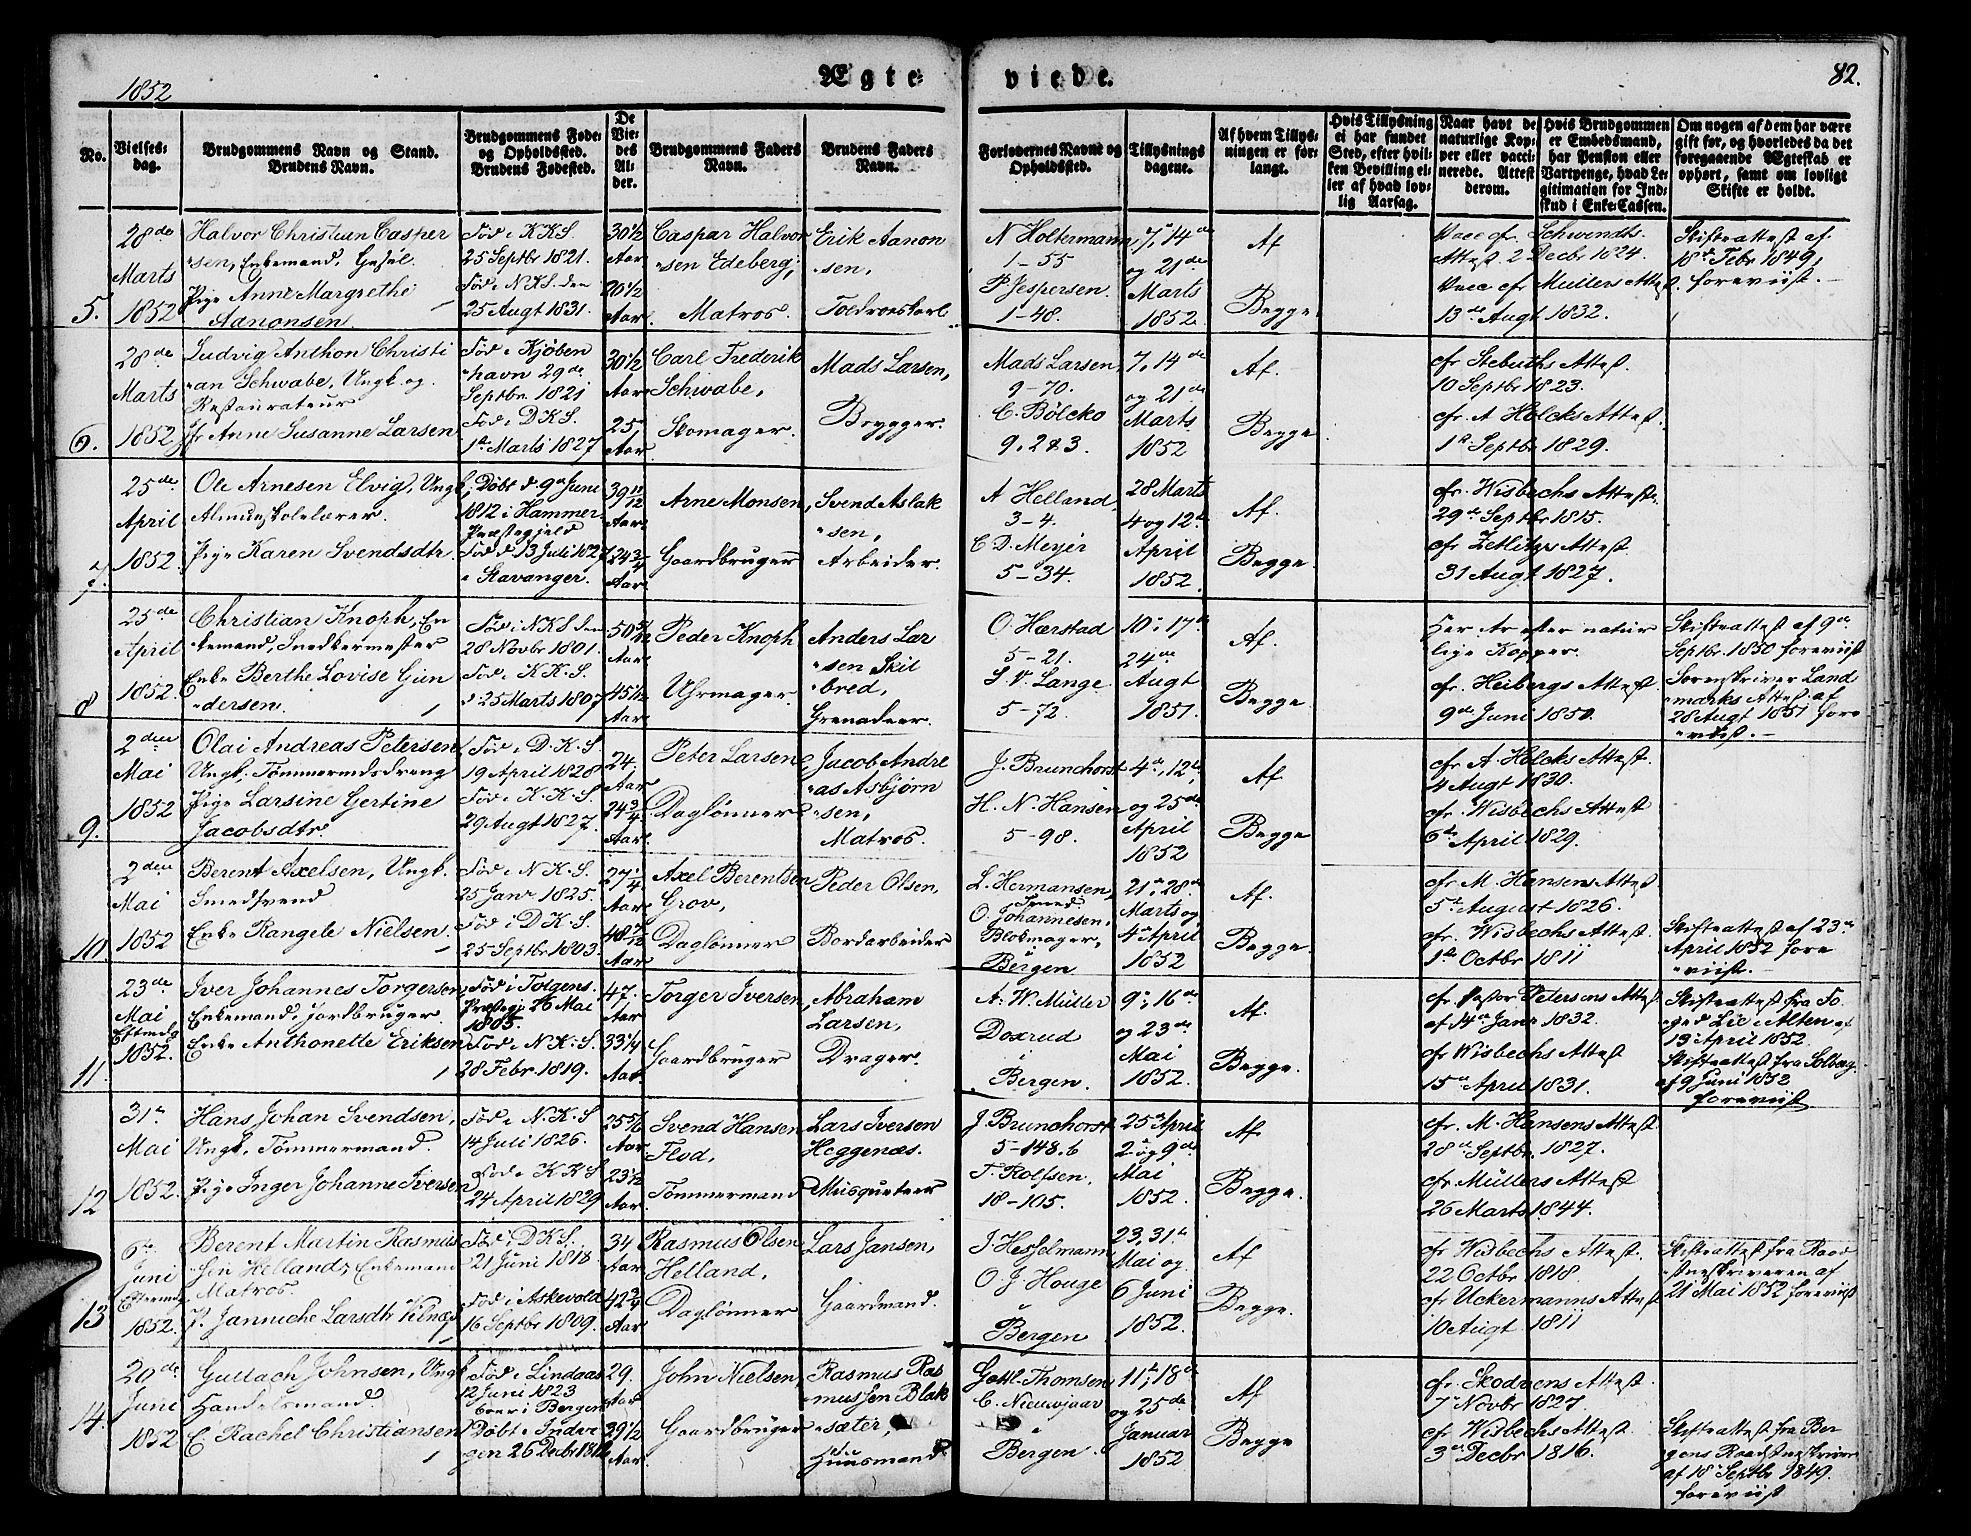 1852
Ægte
viede.
82.
No.
Vielses-
dag.
Brudgommens Navn og Stand.
Brudens Navn.
Brudgommens Føde-
og Opholdssted.
Brudens Fødested.
De
Vie-
des
Al-
der.
Brudgommens Faders
Navn.
Brudens Faders
Navn.
Forlovernes Navne og
Opholdssted.
Tillysnings
dagene.
Af hvem Tillys-
ningen er for-
langt.
Hvis Tillysning
ei har fundet
Sted, efter hvil-
ken Bevilling el-
ler af hvad lov-
lig Aarsag.
Naar havt de
naturlige Kop-
per eller vacci-
nerede. Attest
derom.
Hvis Brudgommen
er Embedsmand,
har Pension eller
Vartpenge, hvad Le-
gitimation for Ind-
skud i Enke-Cassen.
Om nogen af dem har være
gift før, og hvorledes da det
foregaaende Ægteskab er
ophørt, samt om lovligt
Skifte er holdt.
5.
28de
Marts
1852
Halvor Christian Casper
-sen, Enkemand, Gesel.
Pige Anne Margrethe
Aanonsen
Fød i K.K.S.
25 Septbr 1821.
Fød i N.K.S. den
25 Augt 1831.
30 1/2
Aar
20 1/2
Aar.
Caspar Halvor
-sen Edeberg,
Matros.
Erik Aanon
-sen,
Toldroerskarl
N Holtermann,
1-55
P Jespersen.
1-48.
7, 14de
og 21de
Marts
1852
Af
Begge
Vacc cfr Schwendts
Attest 2 Decbr 1824.
Vacc cfr Müllers Attest
13de Augt 1832.
Skifteattest af
18de Febr 1849,
foreviist.
6.
28de
Marts
1852
Ludvig Anthon Christi
-an Schwabe, Ungk. og
Restaurateur
Jfr Anne Susanne Larsen
Fød i Kjøben
-havn 29de
Septbr. 1821
Fød i D.K.S.
1ste Marts 1827
30 1/2
Aar
25
Aar
Carl Frederik
Schwabe,
Skomager.
Mads Larsen,
Brygger.
Mads Larsen,
9-70.
C. Bölcko
9, 2 & 3.
7, 14de
og 21de
Marts
1852
Af.
Begge
cfr Stebuths Attest.
10 Septbr 1823.
cfr. A Holcks Attest.
1st Septbr 1829.
7.
25de
April
1852.
Ole Arnesen Elvig, Ungk,
Almueskolelærer.
Pige Karen Svendsdtr.
Døbt d 9de Juni
1812 i Hammer
Præstegjeld
Fød d 13 Juli 1827
i Stavanger.
39 11/12
Aar
24 3/4
Aar
Arne Monsen,
Gaardbruger
Svend Aslak
-sen,
Arbeider.
A Helland
3-4.
C D. Meyer
5-34.
28 Marts
4 og 12te
April
1852.
Af.
Begge
cfr. Wisbechs Attest.
29de Septbr 1815.
cfr Zetlitz's Attest.
31 Augt 1827.
8
25de
April
1852.
Christian Knoph, En
-kemand, Snedkermester
Enke Berthe Lovise Gun
-dersen.
Fød i N.K.S. den
28 Novbr 1801.
Fød i K.K.S.
d 25 Marts 1807
50 5/12
Aar
45 1/12
Aar
Peder Knoph
Uhrmager
Anders Lar
-sen Skil
-bred,
Grenadeer.
O. Hærstad
5-21.
S. V. Lange
5-72.
10, 17de
24de
Augt
1851.
Af.
Begge
Har Ar efter natur
lige Kopper.
cfr. Heibergs Attest
9de Juni 1850.
Skifteattest af 9de
Septbr. 1850 foreviist
Sorenskriver Land
-marks Attest af
28 Augt 1851 fore
-viist.
9.
2den
Mai
1852
Olai Andreas Petersen
Ungk. Tømmermdsdreng
Pige Larsine Gertine
Jacobsdtr
Fød i D.K.S
19 April 1828
Fød i K.K.S.
29 Augt 1827.
24.
Aar
24 3/4
Aar
Peter Larsen,
Daglønner
Jacob Andre
-as Asbjørn
-sen,
Matros.
J. Brunchorst
H. N. Hansen
5-98.
4de, 12te
og 25de
April
1852
Af.
Begge
cfr A. Holcks Attest.
4 Augt 1830.
cfr. Wisbechs Attest
6te April 1829.
10
2den
Mai
1852
Berent Axelsen, Ungk.
Smedsvend
Enke Rangele Nielsen
Fød i N.K.S.
25 Janr 1825.
Fød i D.K.S.
25 Septbr 1803.
27 1/4
Aar
48 7/12
Aar
Axel Berentsen
Grov,
Daglønner
Peder Olsen,
Bordarbeider
L. Hermansen,
Smed.
O. Johannesen,
Blokmager,
Bergen
21de, 28de
Marts og
4de April
1852
Af.
Begge.
cfr M. Hansens Attest
5te August 1826.
cfr. Wisbechs Attest.
1ste Octbr 1811
Skifteattest af 23de
April 1852 fore
-viist.
11.
23de
Mai
Eftmdg
1852.
Iver Johannes Torgersen,
Enkemand, Jordbruger.
Enke Anthonette Eriksen
Fød i Tolgens
Præstegj. 26 Mai
1805.
Fød i N.K.S.
28 Febr 1819.
47.
Aar
33 1/4
Aar.
Torger Iversen,
Gaardbruger
Abraham
Larsen,
Drager.
A. W. Müller
Doxrud
i
Bergen.
9de, 16de
og 23de
Mai
1852.
Af.
Begge.
cfr Pastor Petersens Attest
af 14de Janr 1832.
cfr Wisbechs Attest
15de April 1831.
Skifteattest fra Fo
-ged Lie i Alten af
13 April 1852.
Skifteattest fra Solberg
af 9 Juni 1852
foreviist
12
31te
Mai
1852.
Hans Johan Svendsen,
Ungk, Tømmermand.
Pige Inger Johanne Iversen
Fød i N.K.S
14 Juli 1826.
Fød i K.K.S
24 April 1829
25 5/6
Aar
23 1/2
Aar.
Svend Hansen
Flod,
Tømmermand
Lars Iversen
Heggenæs.
Musqueteer
J. Brunchorst
5-148.b
T. Rolfsen,
18-105.
25de April
2de og 9de
Mai
1852.
Af.
Begge.
cfr. M. Hansens Attest
28de Septbr. 1827.
cfr Müllers Attest
26 Marts 1844.
13
6te
Juni
Efterm
1852.
Berent Martin Rasmus
-sen Helland, Enkemand
Matros.
P. Janniche Larsdtr Kilnæs
Fød i D.K.S.
21 Juni 1818
Fød i Askevold
16 Septbr 1809.
34
Aar
42 3/4
Aar.
Rasmus Olsen
Helland,
Daglønner
Lars Jansen,
Gaardmand.
J. Hesselmann
O J Houge
i
Bergen
23, 31te
Mai og
6 Juni
1852.
Af
Begge.
cfr Wisbechs Attest.
22 Octbr 1818.
cfr Uckermanns Attest
10 Augt 1811
Skifteattest fra Raad
-stueskriveren af
21 Mai 1852 foreviist
14.
20de
Juni
1852
Gullach Johnsen, Ungk
Handelsmand.
E Rachel Christiansen
Fød i Lindaas
12 Juni 1823
boer i Bergen
Døbt i Indvi
gen 26 Decbr 1812
29.
Aar
39 1/2
Aar.
John Nielsen,
Gaardbruger
Rasmus Ras
mussen Blak
-sæter,
Huusmand
Gottl. Thomsen
C. Nieuwjaar
i
Bergen.
11te, 18de
og 25de
Januar
1852
Af
Begge
cfr. Skodvens Attest
7 Novbr 1827.
cfr. Wisbechs Attest.
3de Decbr 1816.
Skifteattest fra Ber
gens Raadstueskriver
af 18 Septbr 1849.
foreviist